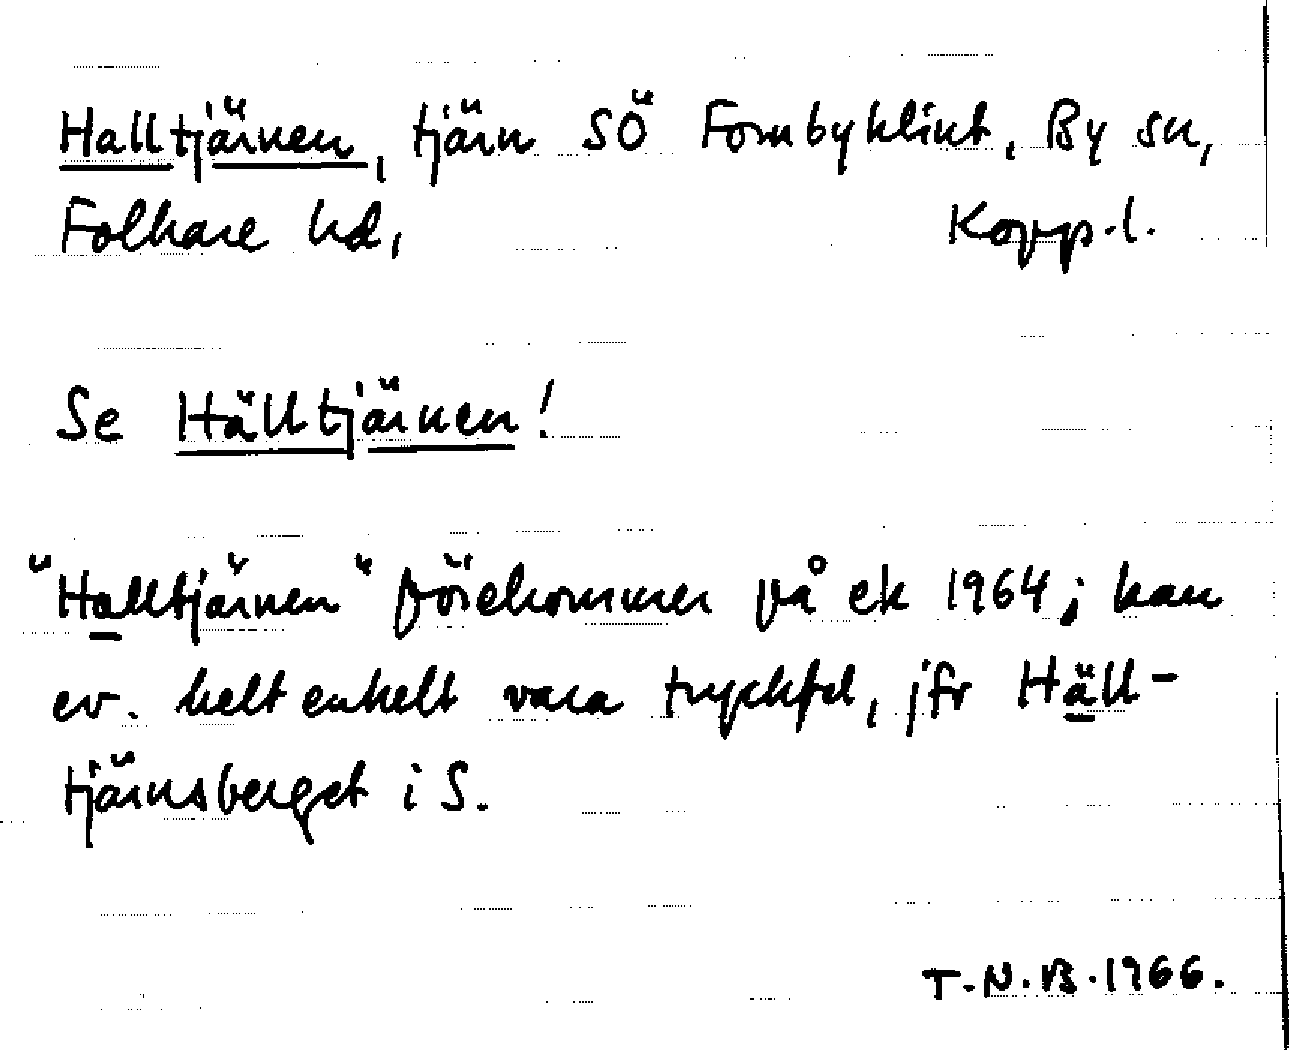 Halltjärnen, tjärn SÖ Fornbyklint, By sn,
Folkare hd, Kopp.l.
Se Hälltjärnen!
"Halltjärnen" förekommer på ek 1964; kan
ev. helt enkelt vara tryckfel, jfr Häll-
tjärnsberget i S.
T.N.B.1966.